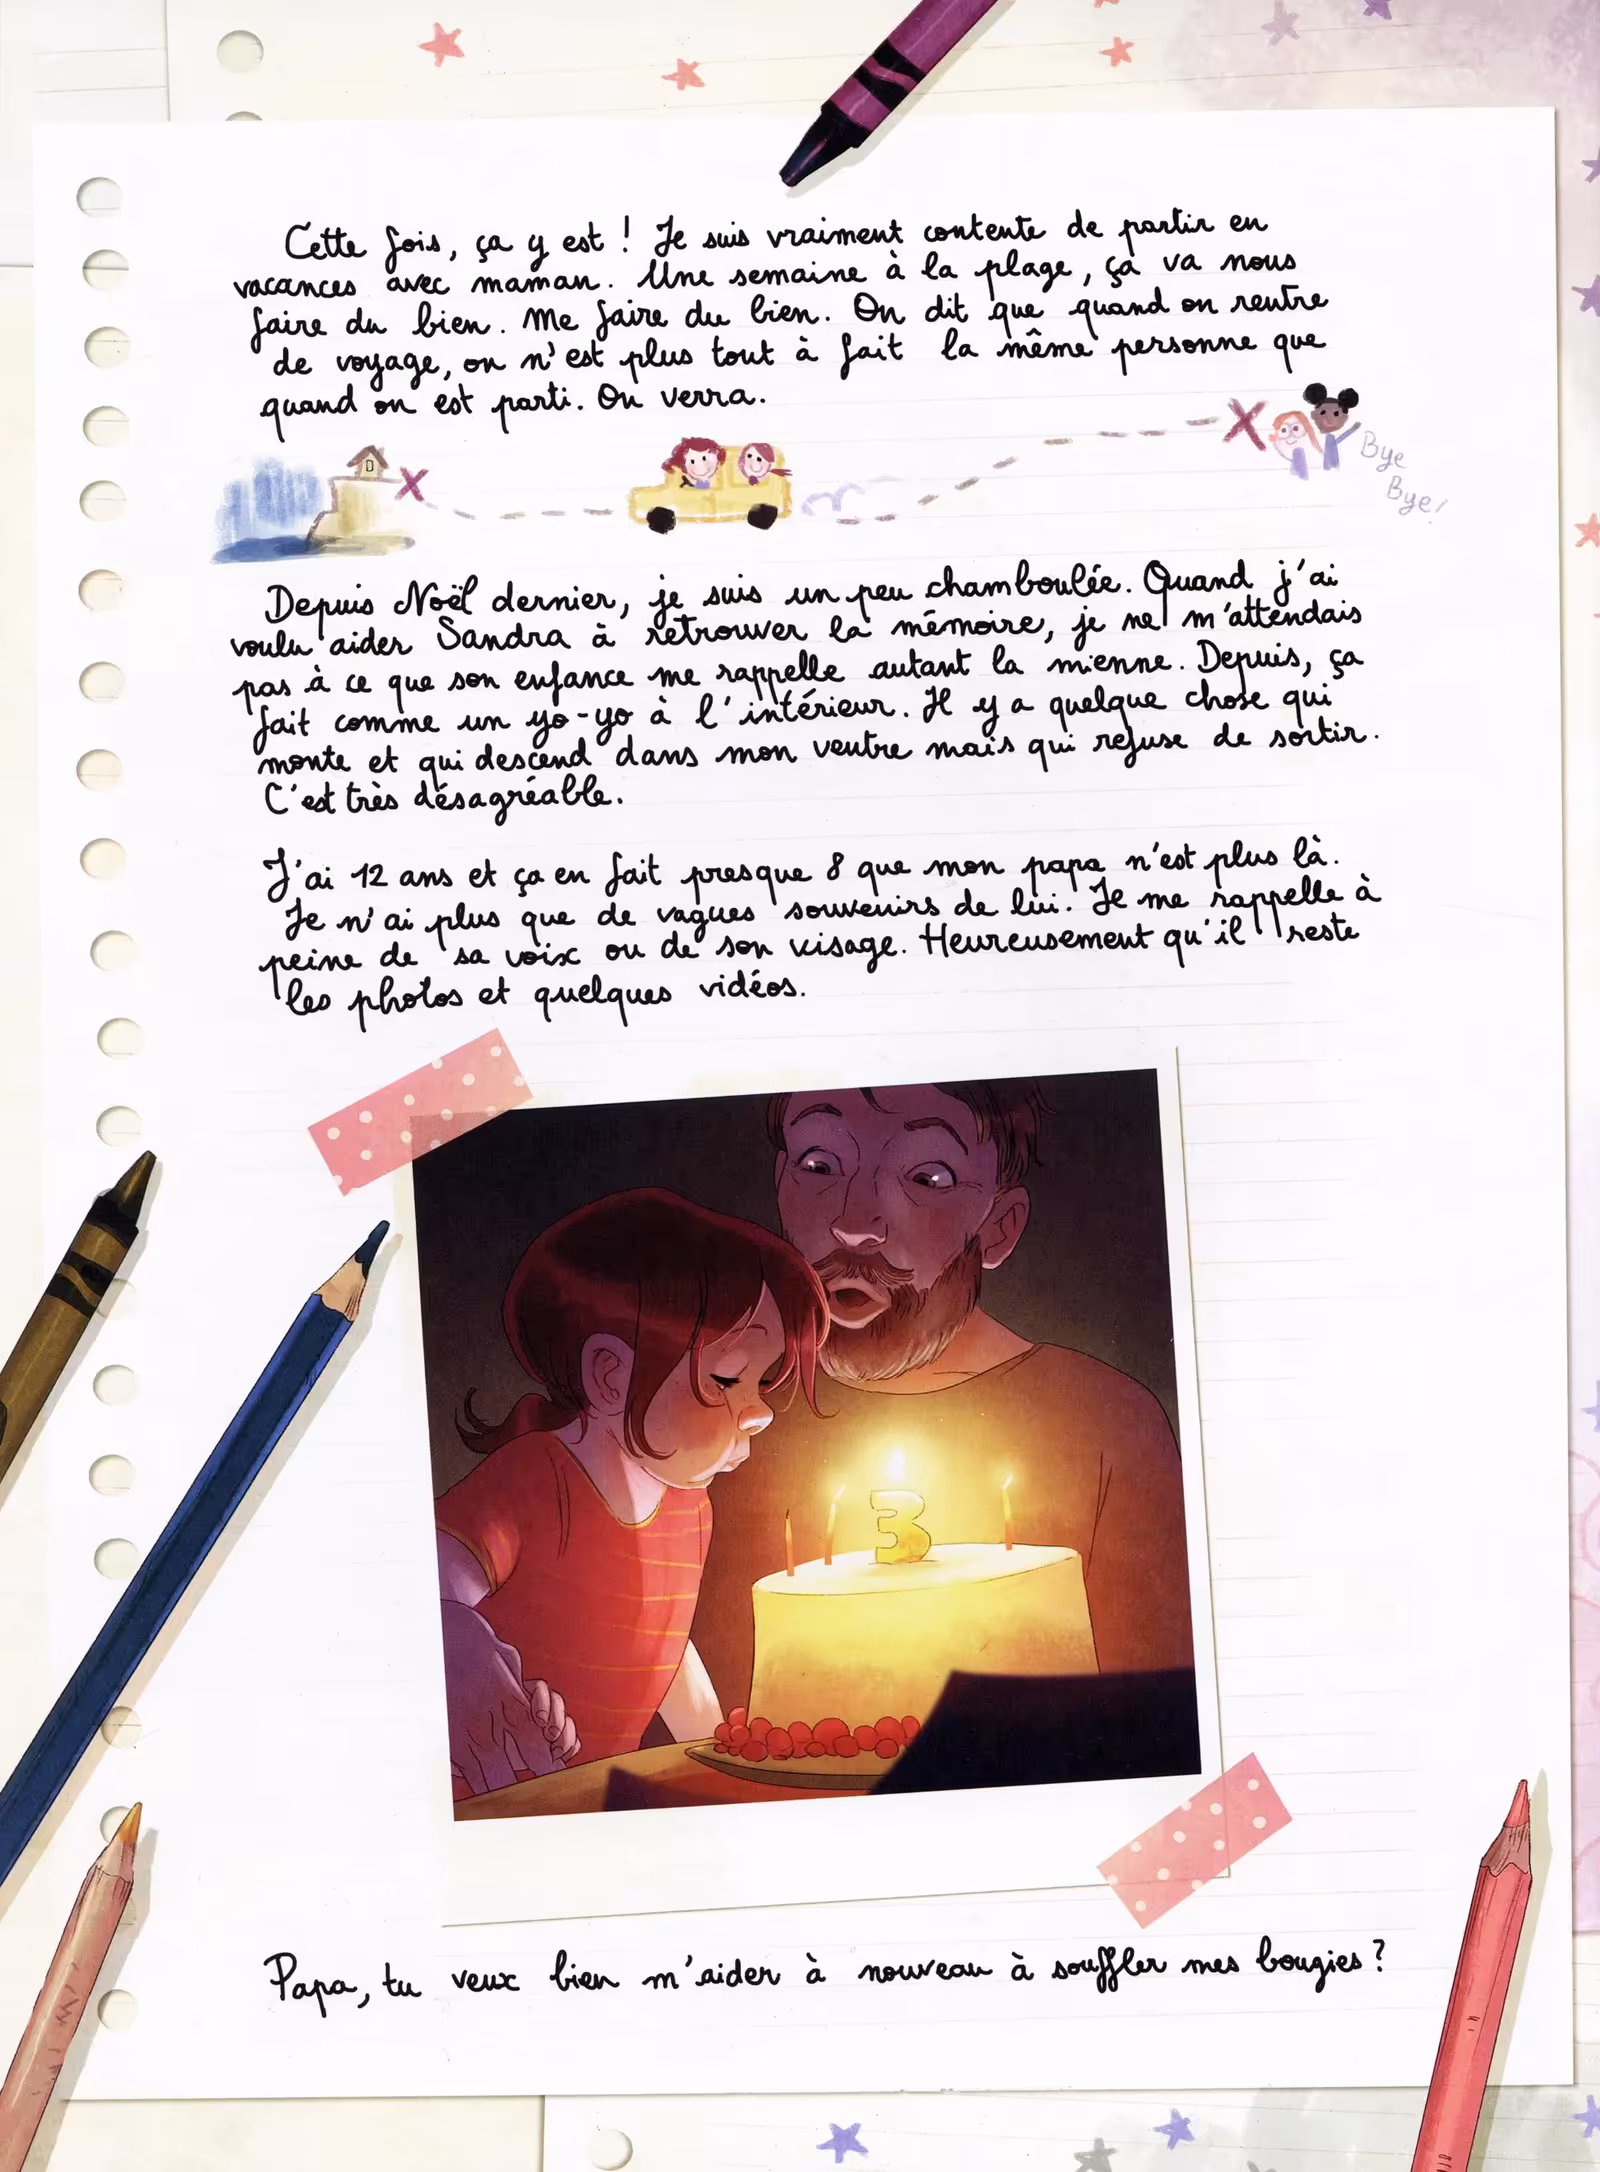 Cette fois, ça y est ! Je suis vraiment contente de partir en
vacances avec maman. Une semaine à la plage, ça va nous
faire du bien. Me faire du bien. On dit que quand on rentre
de voyage, on n'est plus tout à fait la même personne que
quand on est parti. On verra.
D
Bye
Bye!
Depuis Noël dernier, je suis un peu chamboulée. Quand j'ai
voulu aider Sandra à retrouver la mémoire, je ne m'attendais
pas à ce que son enfance me rappelle autant la mienne. Depuis, ça
fait comme un yo-yo à l'intérieur. Il y a quelque chose qui
monte et qui descend dans mon ventre mais qui refuse de sortir.
C'est très désagréable.
J'ai 12 ans et ça en fait presque 8 que mon papa n'est plus là.
Je n'ai plus que de vagues souvenirs de lui. Je me rappelle à
peine de sa voix ou de son visage. Heureusement qu'il reste
les photos et quelques vidéos.
3
Papa, tu veux bien m'aider à nouveau à souffler mes bougies ?